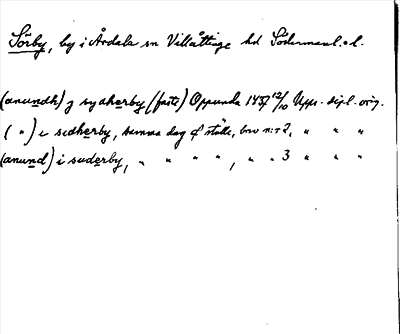 Sörby, by i Årdala sn Villåttinge hd Södermanl. l.
(anundh) j syaherby (faste) Oppunda 1457 12/10 Upps. dipl. orig.
( " ) i sudherby, samma dag o ställe, brev nr 2, " " "
(anund) i suderby, " " " " , " " 3 " " "